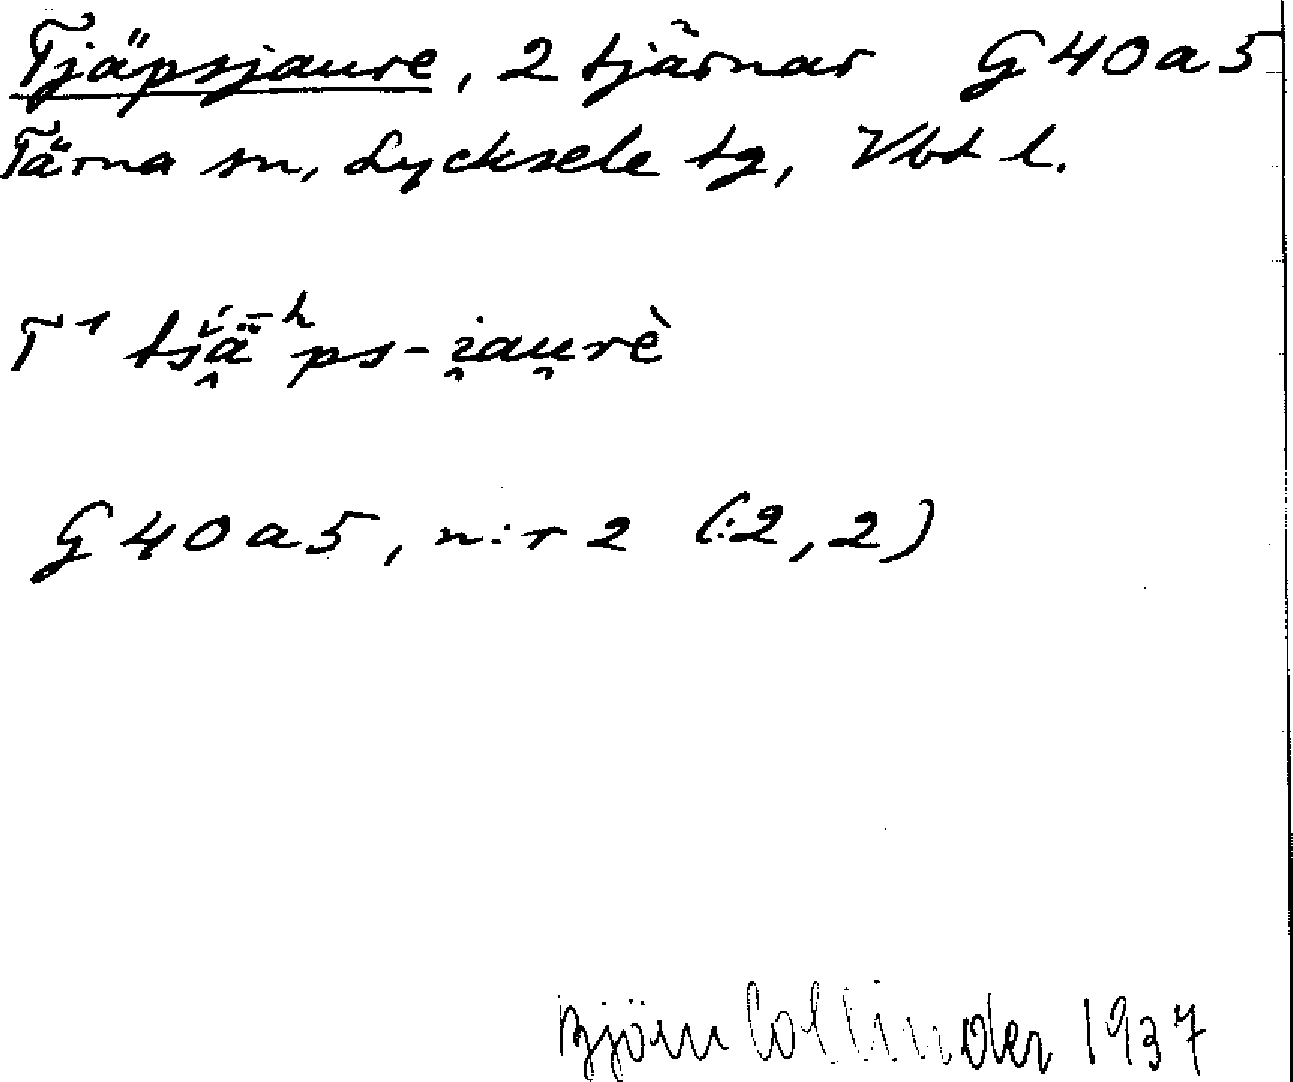 Tjäpsjaure, 2 tjärnar G40a5
Tärna sn, Lycksele tg, Vbt l.
G40a5, n:r 2 (:2, 2)
Björn Collinder 1937